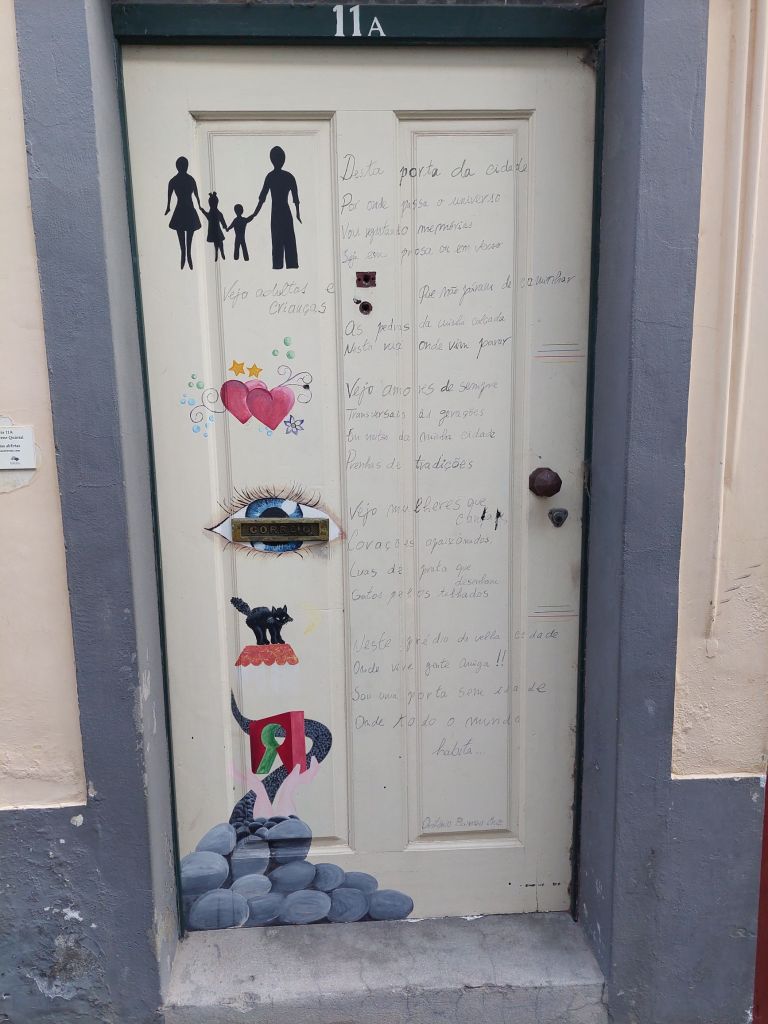 11A
Desta porta da cidade
Por onde passa o universo
Vou registando memórias
Seja em prosa ou em verso
Vejo adultos e
crianças
Que não param de caminhar
As pedras da minha calçada
Nesta rua onde vim parar
Vejo amores de sempre
Transversais às gerações
Em noites da minha cidade
Prenhas de tradições
Vejo mulheres que
Corações apaixonados,
Luas de prata que
desenham
Gatos pelos telhados
CORREIO
Neste prédio da velha cidade
Onde vive gente amiga!!
Sou uma porta sem idade
Onde todo o mundo
habita...
11A
Quintal